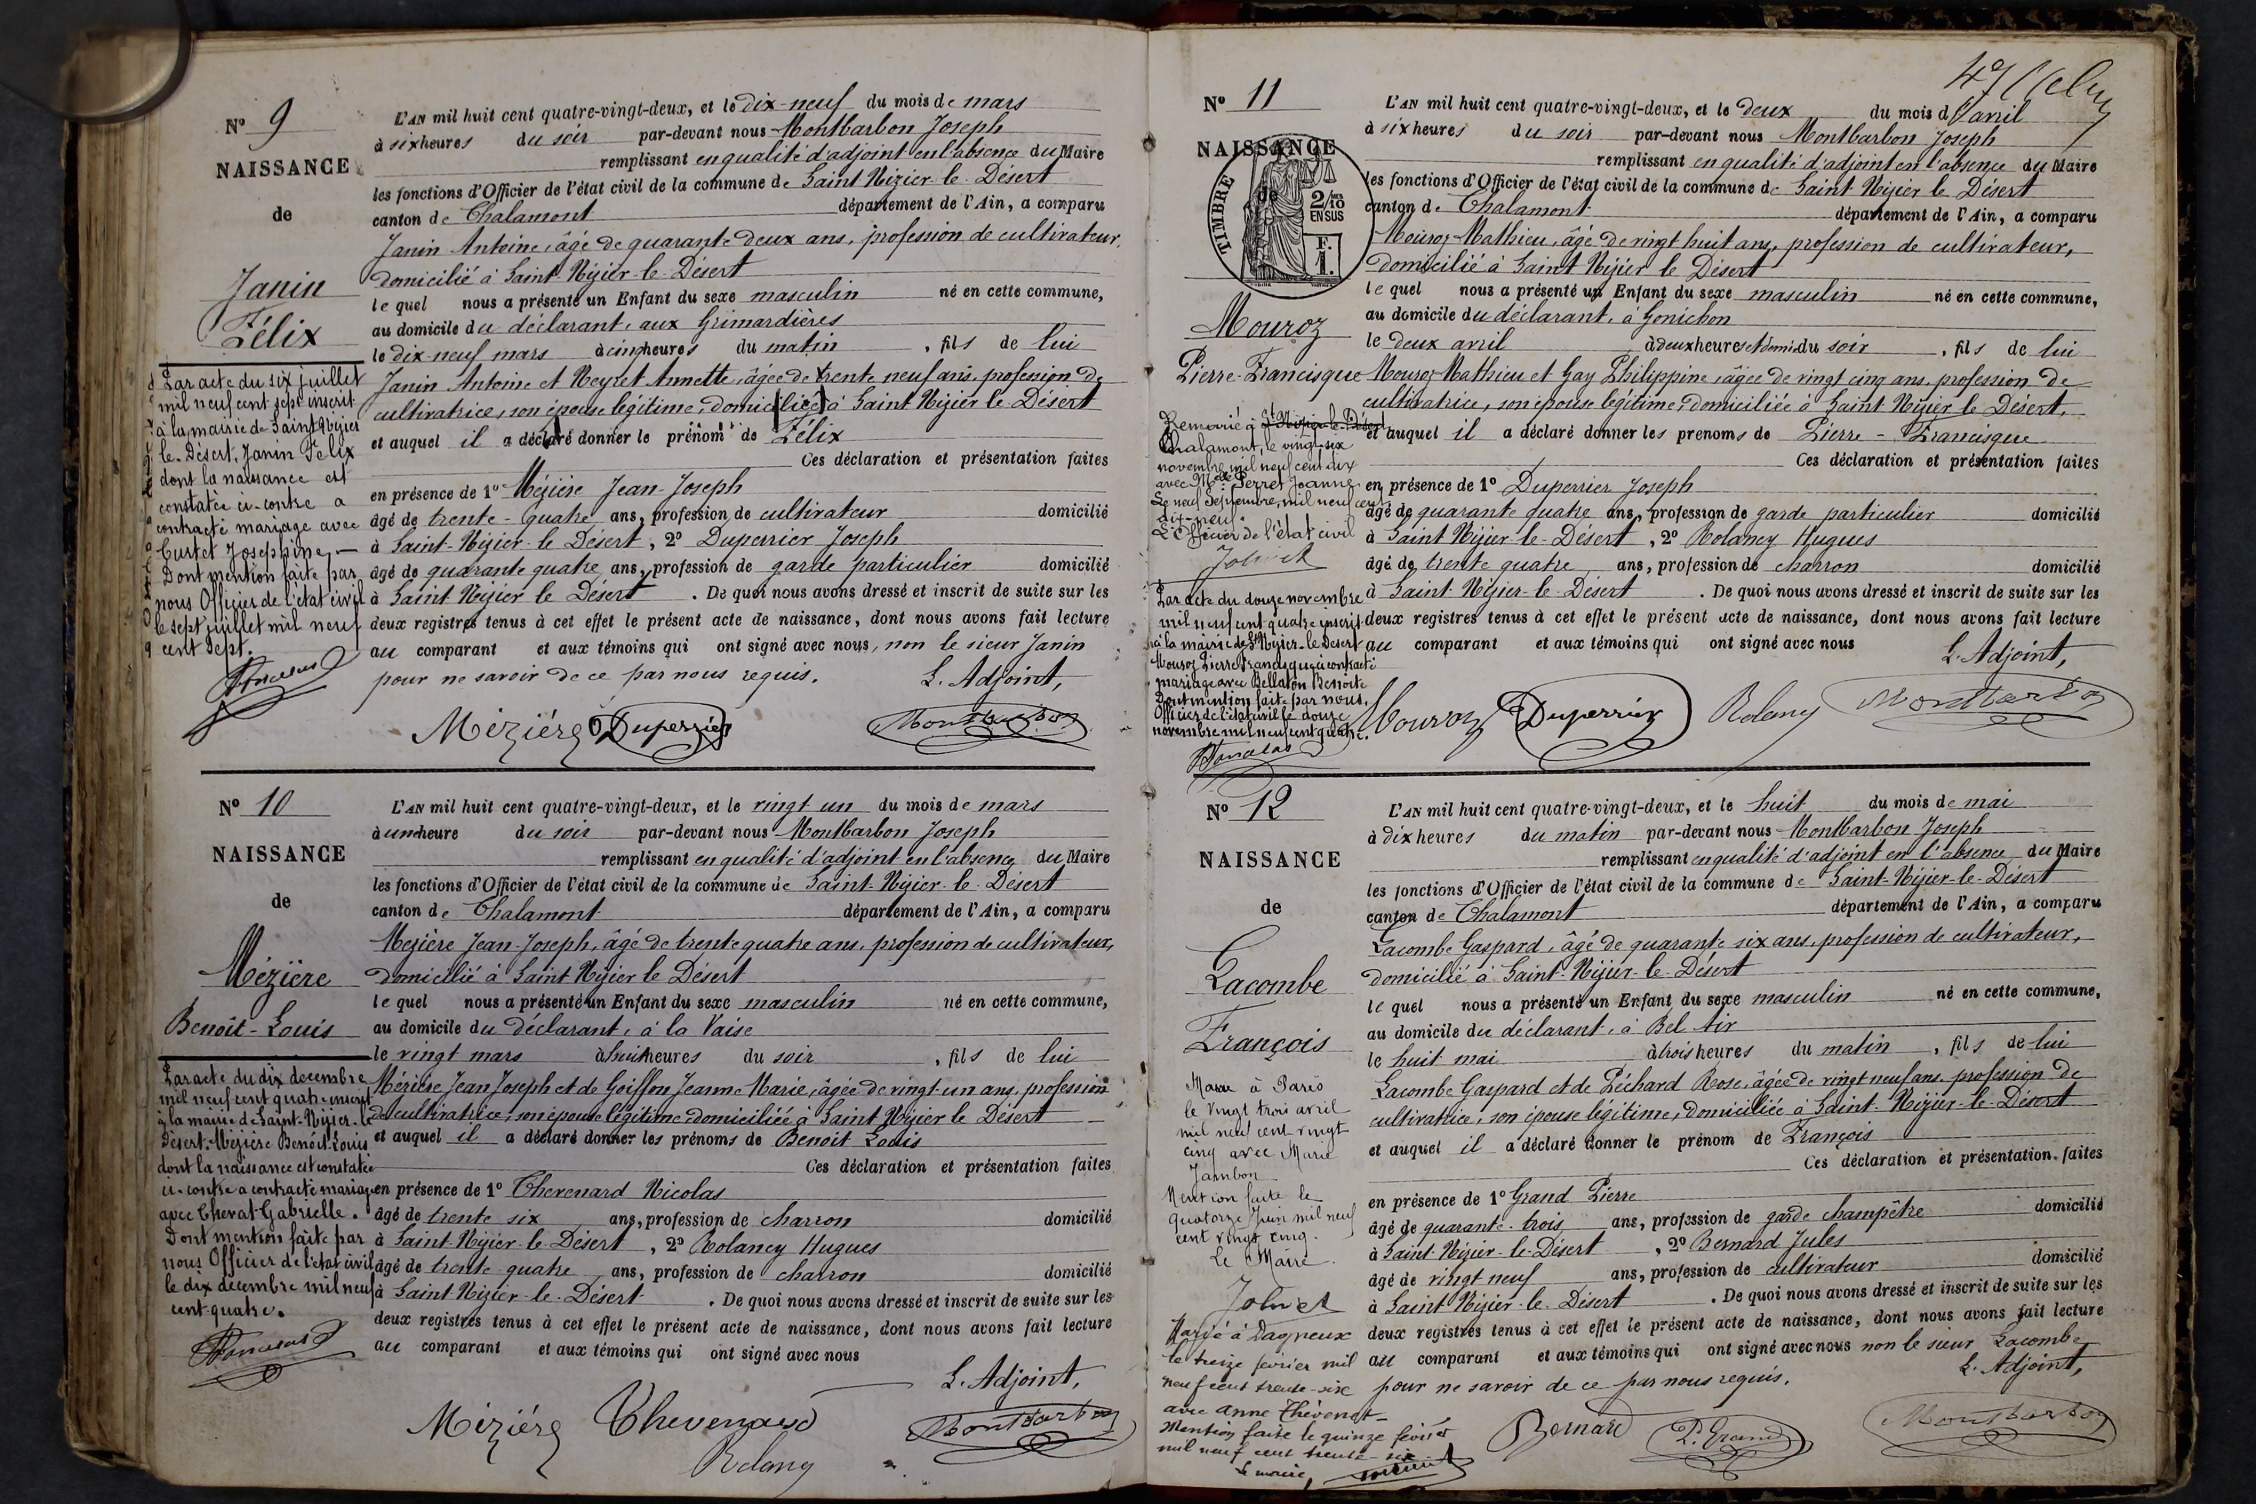 N° 9
NAISSANCE
de
Janin
Félix
Par acte du six juillet
mil neuf cent sept inscrit
à la mairie de Saint Nizier
le-Désert, Janin Félix
dont la naissance est
constatée ci-contre a
contracté mariage avec
Curtet Joséphine,—
Dont mention faite par
nous Officier de l'état civil
le sept juillet mil neuf
cent sept.
L'AN mil huit cent quatre-vingt-deux, et le dix-neuf du mois de mars
à six heures du soir par-devant nous Montbarbon Joseph
remplissant en qualité d'adjoint en l'absence du Maire
les fonctions d'Officier de l'état civil de la commune de Saint Nizier-le-Désert
canton de Chalamont département de l'Ain, a comparu
Janin Antoine, âgé de quarante deux ans, profession de cultivateur,
domicilié à Saint Nizier-le-Désert
le quel nous a présenté un Enfant du sexe masculin né en cette commune,
au domicile du déclarant, aux Grimardières
le dix-neuf mars à cinq heures du matin, fils de lui
Janin Antoine et Neyret Annette, âgée de trente neuf ans, profession de
cultivatrice, son épouse légitime, domiciliée à Saint Nizier le Désert
et auquel il a déclaré donner le prénom de Félix
Ces déclaration et présentation faites
en présence de 1° Mézière Jean-Joseph
âgé de trente-quatre ans, profession de cultivateur domicilié
à Saint-Nizier-le Désert, 2° Duperrier Joseph
âgé de quarante quatre ans, profession de garde particulier domicilié
à Saint Nizier le Désert. De quoi nous avons dressé et inscrit de suite sur les
deux registres tenus à cet effet le présent acte de naissance, dont nous avons fait lecture
au comparant et aux témoins qui ont signé avec nous, non le sieur Janin
pour ne savoir de ce par nous requis.
L. Adjoint,
Mézière Duperrier Montbarbon
N° 10
NAISSANCE
de
Mézière
Benoît-Louis
Par acte du dix décembre
mil neuf cent quatre inscrit
à la mairie de Saint-Nizier-le
Désert. Mézière Benoît-Louis
dont la naissance est constatée
ci-contre a contracté mariage
avec Chevat Gabrielle.
Dont mention faite par
nous Officier de l'état civil
le dix décembre mil neuf
cent-quatre.
L'AN mil huit cent quatre-vingt-deux, et le vingt un du mois de mars
à une heure du soir par-devant nous Montbarbon Joseph
remplissant en qualité d'adjoint en l'absence du Maire
les fonctions d'Officier de l'état civil de la commune de Saint-Nizier-le-Désert
canton de Chalamont département de l'Ain, a comparu
Mézière Jean-Joseph, âgé de trente quatre ans, profession de cultivateur,
domicilié à Saint Nizier le Désert
le quel nous a présenté un Enfant du sexe masculin né en cette commune,
au domicile du déclarant, à la Vaise
le vingt mars à huit heures du soir, fils de lui
Mézière Jean Joseph et de Goiffon Jeanne Marie, âgée de vingt-un ans, profession
de cultivatrice, son épouse légitime domiciliée à Saint Nizier le Désert
et auquel il a déclaré donner les prénoms de Benoît Louis
Ces déclaration et présentation faites
en présence de 1° Thevenard Nicolas
âgé de trente six ans, profession de charron domicilié
à Saint-Nizier-le-Désert, 2° Rolancy Hugues
âgé de trente-quatre ans, profession de charron domicilié
à Saint Nizier-le-Désert. De quoi nous avons dressé et inscrit de suite sur les
deux registres tenus à cet effet le présent acte de naissance, dont nous avons fait lecture
au comparant et aux témoins qui ont signé avec nous
L. Adjoint,
Mézière Thevenard Montbarbon
Rolancy
N° 11
NAISSANCE
de
TIMBRE
2/10
EN SUS
F.
1.
Mouroz
Pierre-Francisque
Remarié à St Nizier-le-Désert
Chalamont, le vingt-six
novembre mil neuf cent dix
avec Perret Joanne
Le neuf Septembre, mil neuf cent
dix-neuf.
L'Officier de l'état civil
Par acte du douze novembre
mil neuf cent quatre inscrit
à la mairie de St Nizier-le-Désert
Mouroz Pierre Francisque a contracté
mariage avec Bellaton Benoîte
Dont mention faite par nous,
Officier de l'état civil le douze
novembre mil neuf cent quatre.
L'AN mil huit cent quatre-vingt-deux, et le deux du mois d'avril
à six heures du soir par-devant nous Montbarbon Joseph
remplissant en qualité d'adjoint en l'absence du Maire
les fonctions d'Officier de l'état civil de la commune de Saint Nizier le Désert
canton de Chalamont département de l'Ain, a comparu
Mouroz Mathieu, âgé de vingt huit ans, profession de cultivateur,
domicilié à Saint Nizier le Désert
le quel nous a présenté un Enfant du sexe masculin né en cette commune,
au domicile du déclarant, à Gonichon
le deux avril à deux heures et demi du soir, fils de lui
Mouroz Mathieu et Gay Philippine, âgée de vingt cinq ans, profession de
cultivatrice, son épouse légitime, domiciliée à Saint Nizier le Désert,
et auquel il a déclaré donner les prenoms de Pierre-Francisque
Ces déclaration et présentation faites
en présence de 1° Duperrier Joseph
âgé de quarante quatre ans, profession de garde particulier domicilié
à Saint Nizier-le-Désert, 2° Rolancy Hugues
âgé de trente quatre ans, profession de charron domicilié
à Saint Nizier-le-Désert. De quoi nous avons dressé et inscrit de suite sur les
deux registres tenus à cet effet le présent acte de naissance, dont nous avons fait lecture
au comparant et aux témoins qui ont signé avec nous
L. Adjoint,
Mouroz Duperrier Rolancy Montbarbon
N° 12
NAISSANCE
de
Lacombe
François
Marié à Paris
le vingt trois avril
mil neuf cent vingt
cinq avec Marie
Jambon
Mention faite le
quatorze Juin mil neuf
cent vingt cinq.
Le Maire.
Marié à Dagneux
le treize février mil
neuf cent trente-six
avec Anne Thévenet
Mention faite le quinze février
mil neuf cent trente-six
Le maire,
L'AN mil huit cent quatre-vingt-deux, et le huit du mois de mai
à dix heures du matin par-devant nous Montbarbon Joseph
remplissant en qualité d'adjoint en l'absence du Maire
les fonctions d'Officier de l'état civil de la commune de Saint-Nizier-le-Désert
canton de Chalamont département de l'Ain, a comparu
Lacombe Gaspard, âgé de quarante six ans, profession de cultivateur,
domicilié à Saint-Nizier-le-Désert
le quel nous a présenté un Enfant du sexe masculin né en cette commune,
au domicile du déclarant, à Bel Air
le huit mai à trois heures du matin, fils de lui
Lacombe Gaspard et de Péchard Rose, âgée de vingt neuf ans, profession de
cultivatrice, son épouse légitime, domiciliée à Saint-Nizier-le-Désert
et auquel il a déclaré donner le prénom de François
Ces déclaration et présentation faites
en présence de 1° Grand Pierre
âgé de quarante-trois ans, profession de garde champêtre domicilié
à Saint-Nizier-le-Désert, 2° Bernard Jules
âgé de vingt neuf ans, profession de cultivateur domicilié
à Saint Nizier-le-Désert. De quoi nous avons dressé et inscrit de suite sur les
deux registres tenus à cet effet le présent acte de naissance, dont nous avons fait lecture
au comparant et aux témoins qui ont signé avec nous non le sieur Lacombe
pour ne savoir de ce par nous requis.
L. Adjoint,
Bernard P. Grand Montbarbon